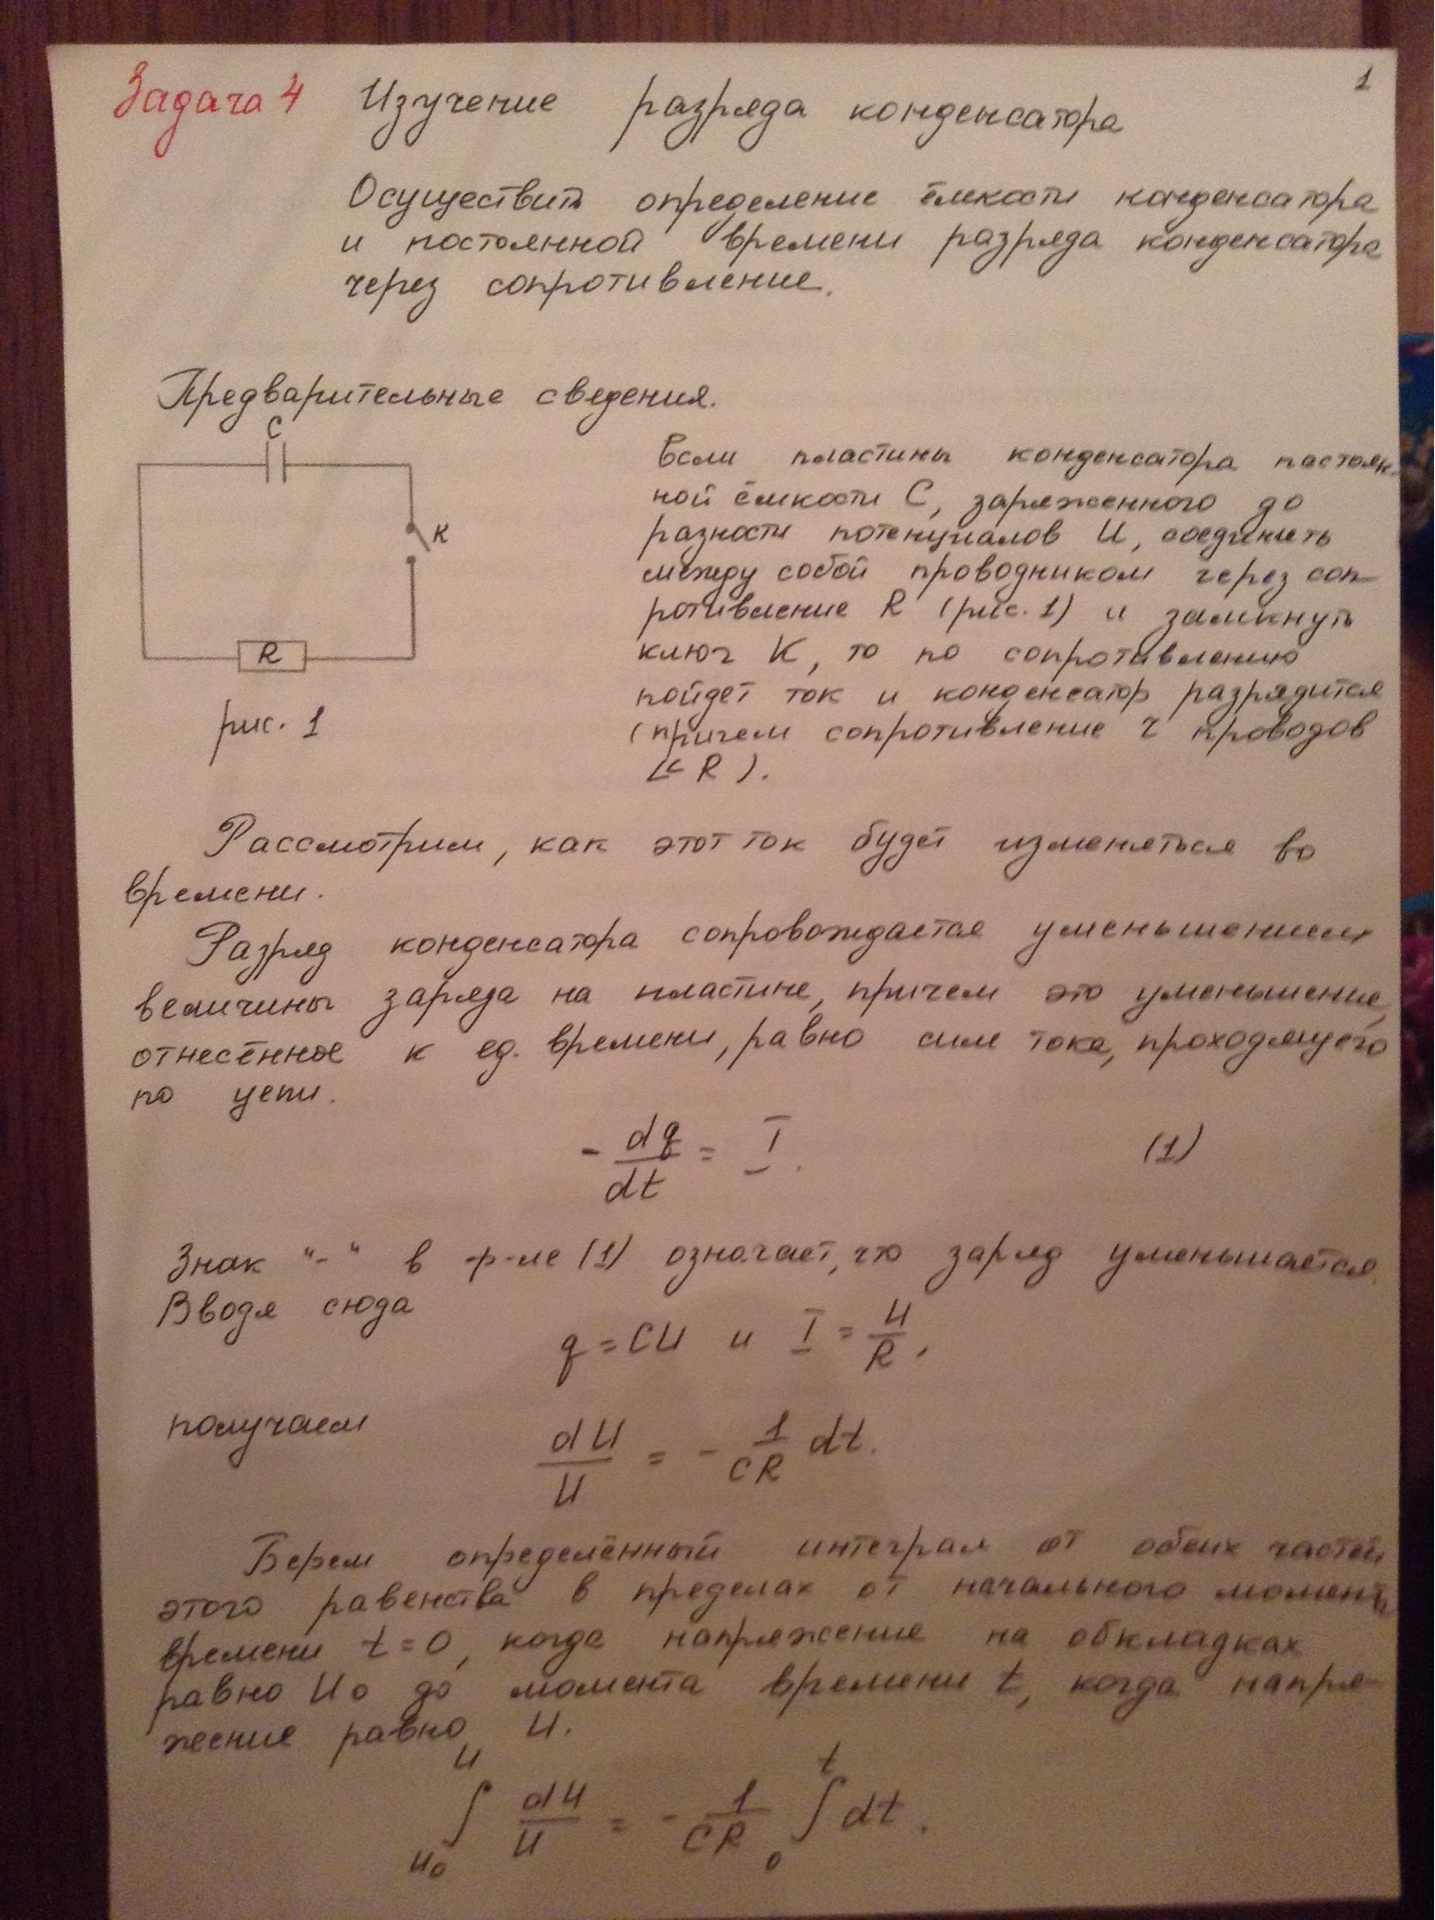 1
Задача 4 Изучение разряда конденсатора
Осуществить определение ёмкости конденсатора
и постоянной времени разряда конденсатора
через сопротивление.
Предварительные сведения.
C
K
R
рис. 1
Если пластины конденсатора постоян-
ной ёмкости C, заряженного до
разности потенциалов U, соединить
между собой проводником через соп-
ротивление R (рис. 1) и замкнуть
ключ K, то по сопротивлению
пойдет ток и конденсатор разрядится
(причем сопротивление r проводов
<< R).
Рассмотрим, как этот ток будет изменяться во
времени.
Разряд конденсатора сопровождается уменьшением
величины заряда на пластине, причем это уменьшение,
отнесённое к ед. времени, равно силе тока, проходящего
по цепи.
- dq/dt = I. (1)
Знак "-" в ф-ле (1) означает, что заряд уменьшается.
Вводя сюда
q = CU и I = U/R,
получаем
dU/U = - 1/CR dt.
Берем определённый интеграл от обеих частей
этого равенства в пределах от начального момента
времени t=0, когда напряжение на обкладках
равно U₀ до момента времени t, когда напря-
жение равно U.
∫_{U₀}^{U} dU/U = - 1/CR ∫_{0}^{t} dt.